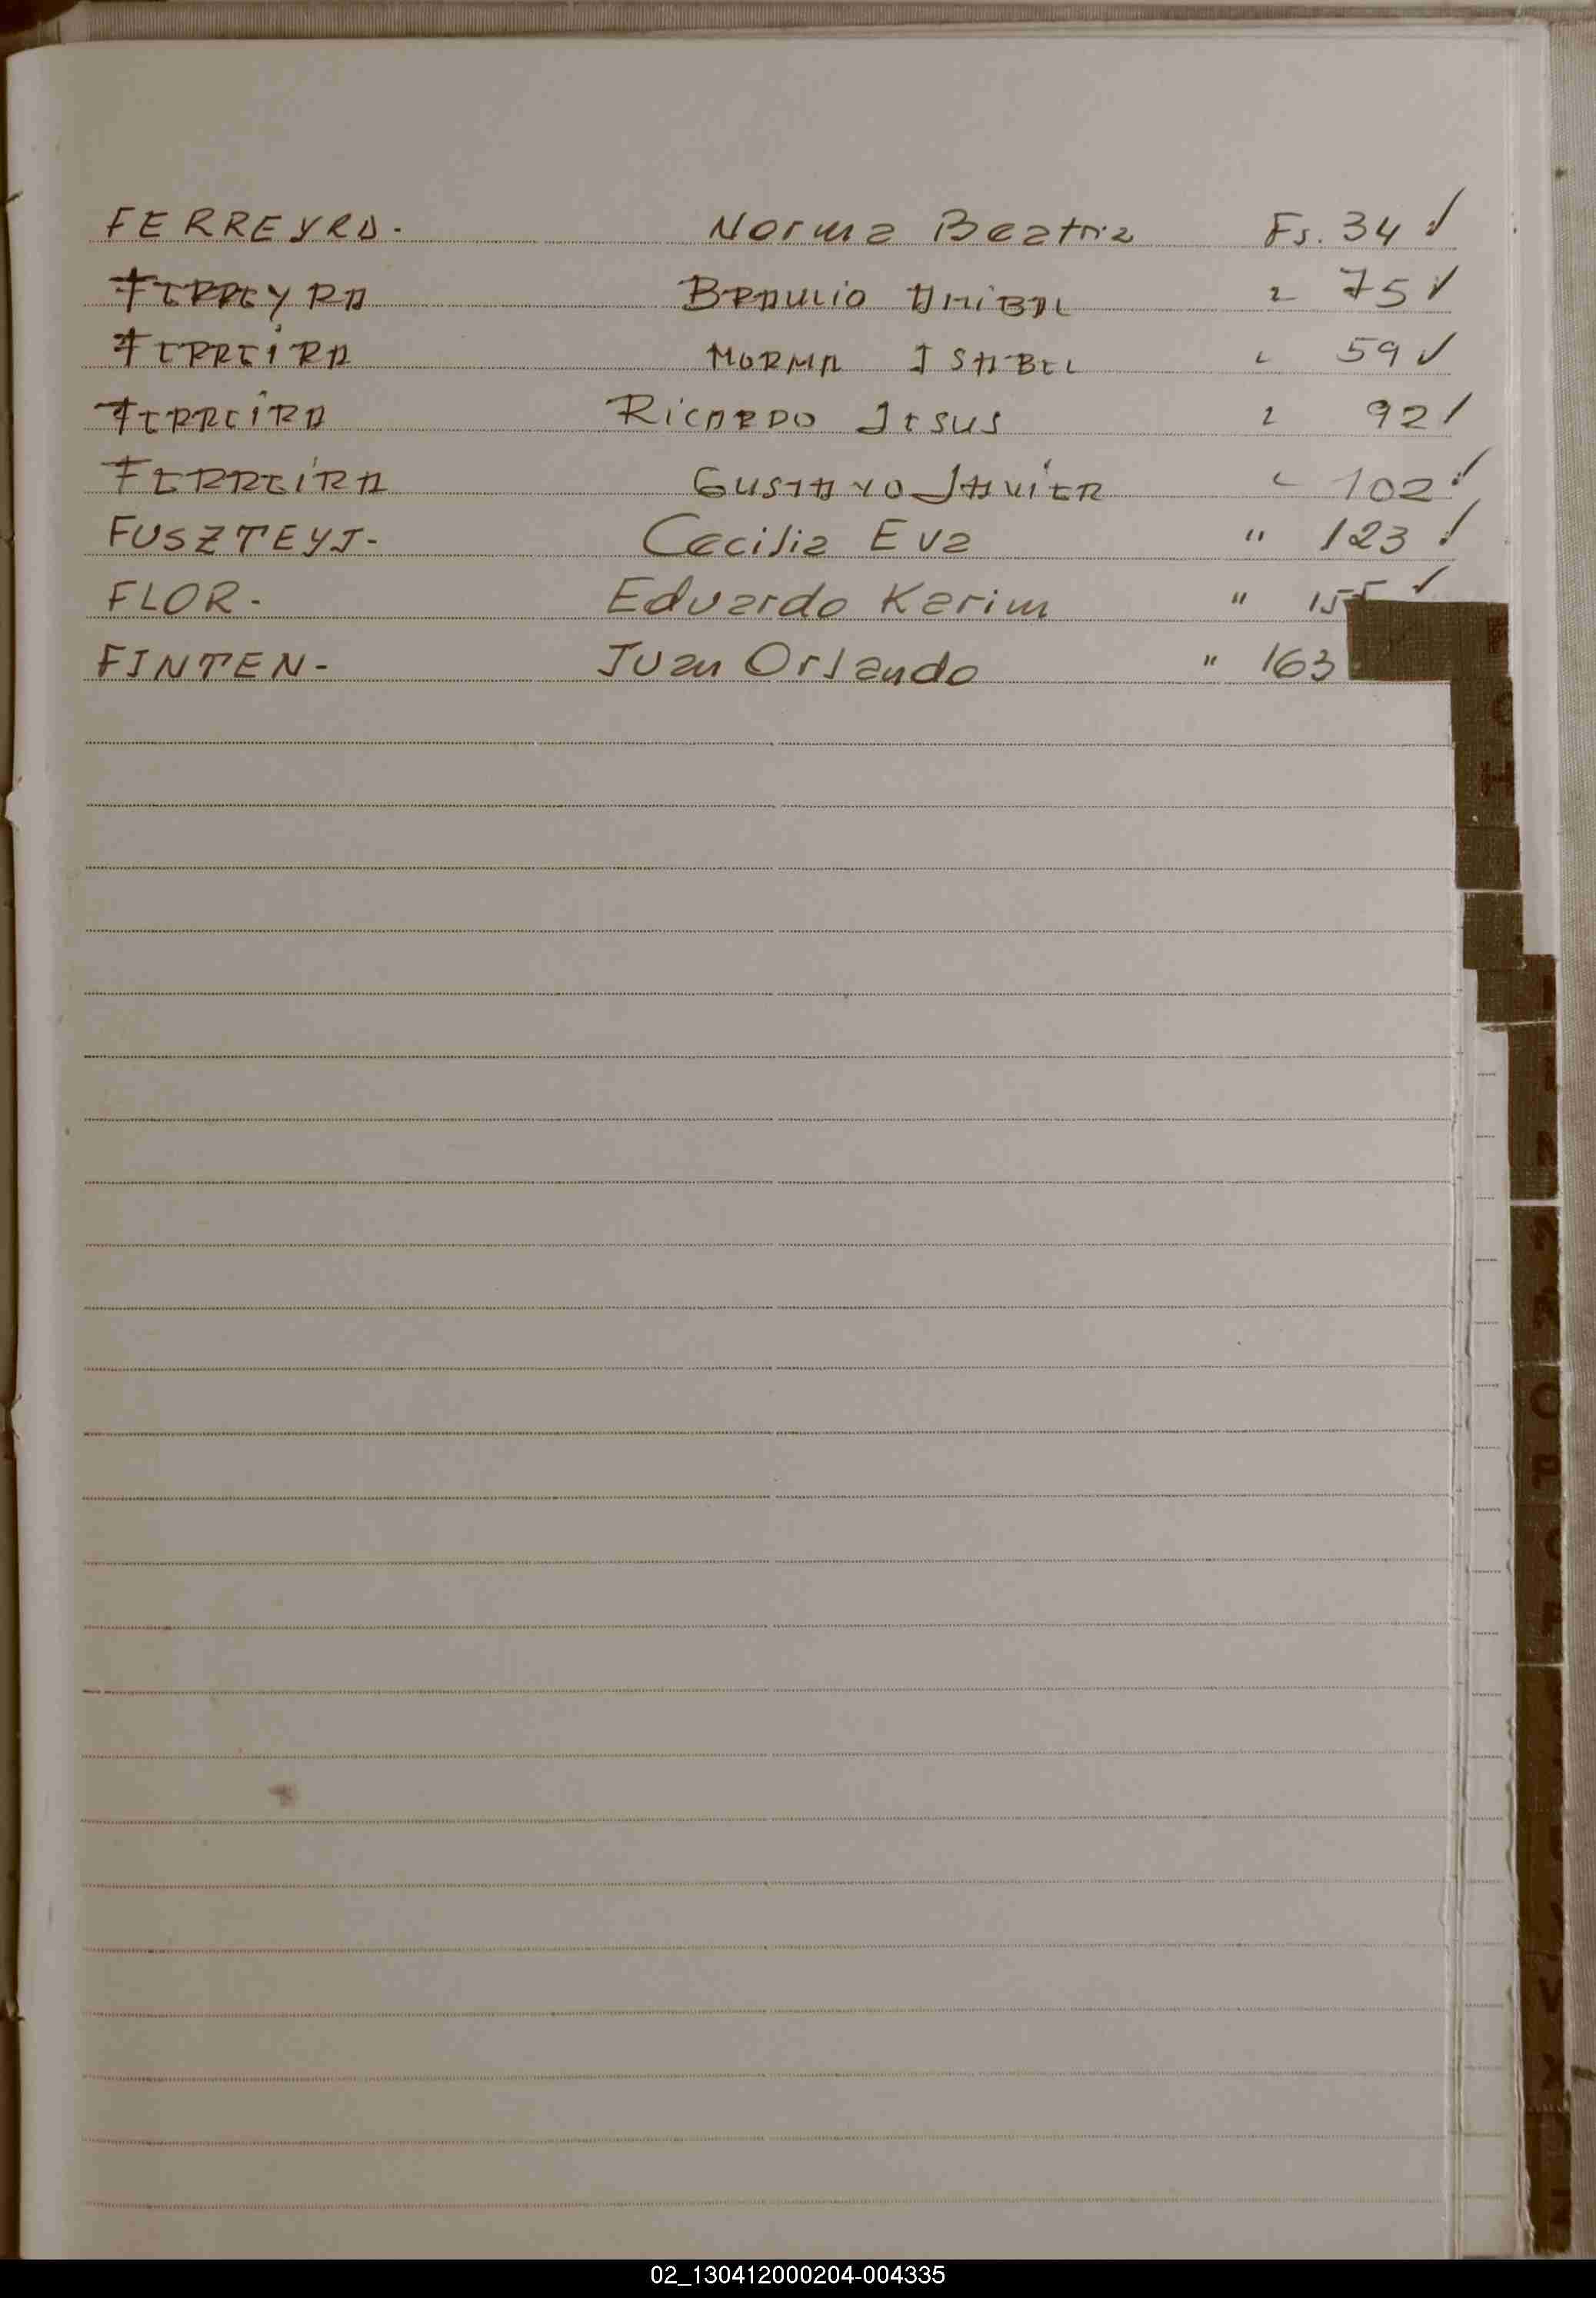 FERREYRA. Norma Beatriz Fs. 34 ✓
FERREYRA BRAULIO ANIBAL " 75 ✓
FERREIRA NORMA ISABEL " 59 ✓
FERREIRA RICARDO JESUS " 92 ✓
FERREIRA GUSTAVO JAVIER " 102 ✓
FUSZTEYJ- Cecilia Eva " 123 ✓
FLOR- Eduardo Karim " 155 ✓
FINTEN- Juan Orlando " 163
H
O
V
02_130412000204-004335